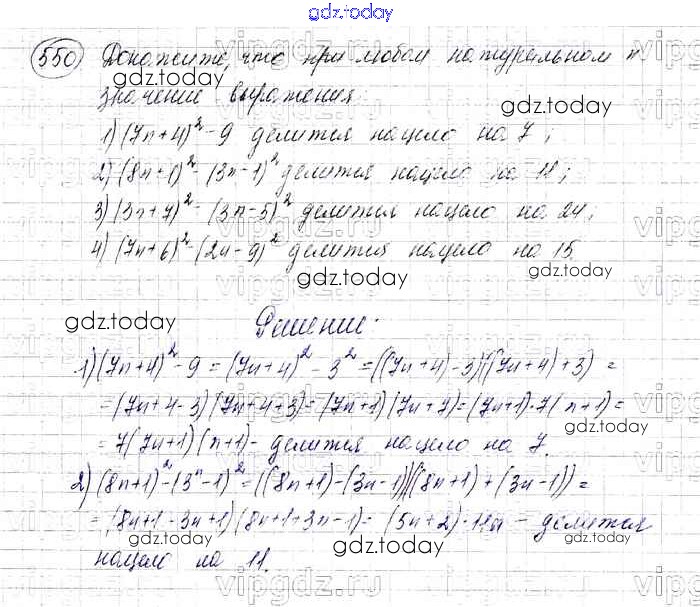 gdz.today
550 Докажите, что при любом натуральном n
gdz.today
значение выражения: gdz.today
1) (7n+4)² - 9 делится нацело на 7;
2) (8n+1)² - (3n-1)² делится нацело на 11;
3) (3n+7)² - (3n-5)² делится нацело на 24;
4) (7n+6)² - (2n-9)² делится нацело на 15.
gdz.today gdz.today
gdz.today Решение:
1) (7n+4)² - 9 = (7n+4)² - 3² = ((7n+4)-3)((7n+4)+3) =
= (7n+4-3)(7n+4+3) = (7n+1)(7n+7) = (7n+1)·7(n+1) =
gdz.today
= 7(7n+1)(n+1) - делится нацело на 7.
gdz.today
2) (8n+1)² - (3n-1)² = ((8n+1)-(3n-1))((8n+1)+(3n-1)) =
gdz.today
= (8n+1-3n+1)(8n+1+3n-1) = (5n+2)·11n - делится
нацело на 11. gdz.today gdz.today
vipgdz.ru